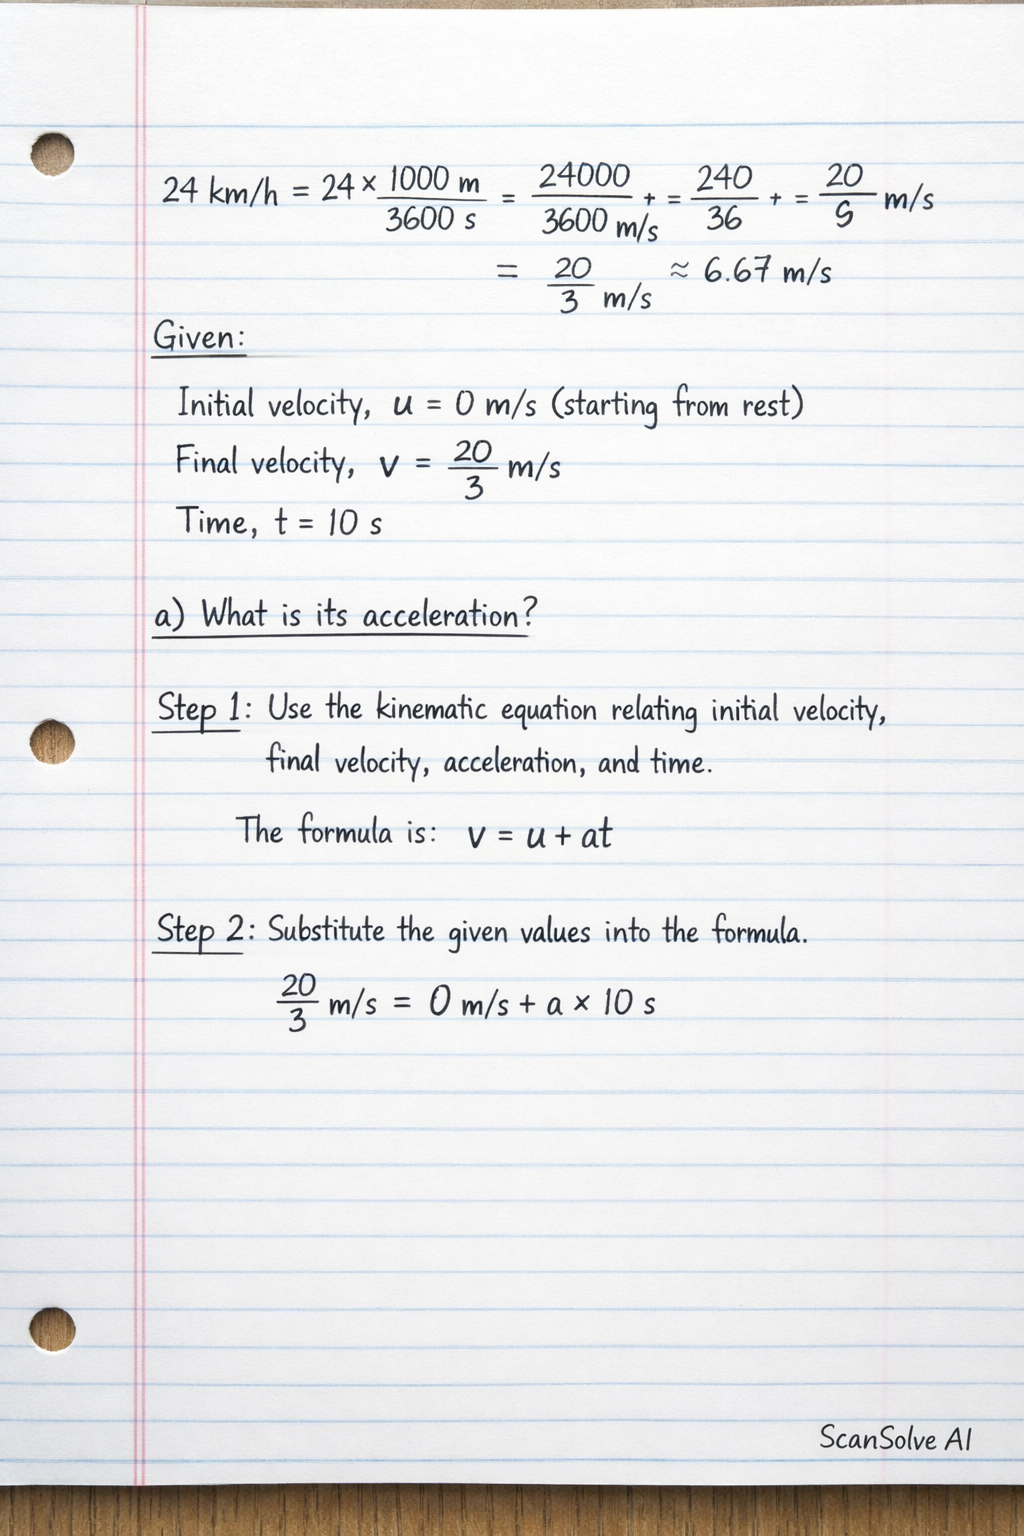 24 km/h = 24 × 1000 m / 3600 s = 24000 / 3600 m/s + = 240 / 36 + = 20 / 9 m/s
= 20 / 3 m/s ≈ 6.67 m/s
Given:
Initial velocity, u = 0 m/s (starting from rest)
Final velocity, v = 20 / 3 m/s
Time, t = 10 s
a) What is its acceleration?
Step 1: Use the kinematic equation relating initial velocity,
final velocity, acceleration, and time.
The formula is: v = u + at
Step 2: Substitute the given values into the formula.
20 / 3 m/s = 0 m/s + a × 10 s
ScanSolve AI